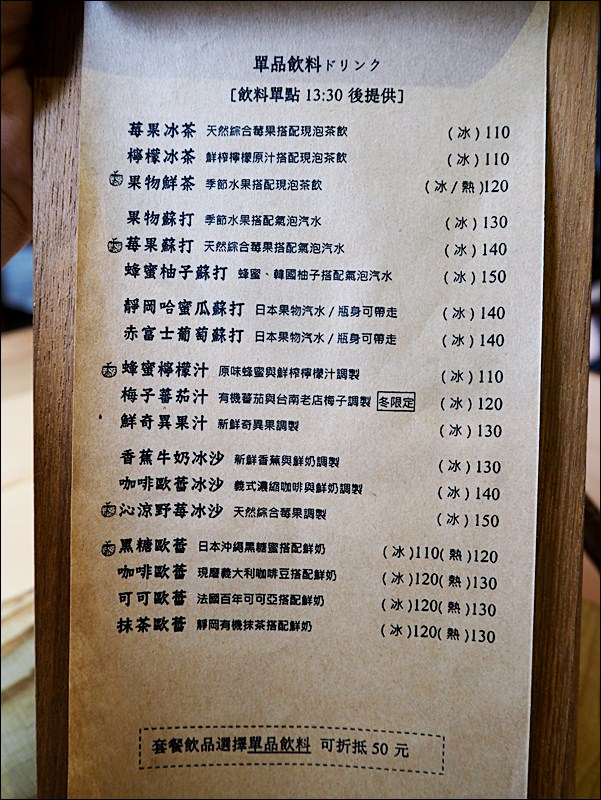 單品飲料ドリンク
[飲料單點 13:30 後提供]
莓果冰茶 天然綜合莓果搭配現泡茶飲 (冰) 110
檸檬冰茶 鮮榨檸檬原汁搭配現泡茶飲 (冰) 110
果物鮮茶 季節水果搭配現泡茶飲 (冰/熱) 120
果物蘇打 季節水果搭配氣泡汽水 (冰) 130
莓果蘇打 天然綜合莓果搭配氣泡汽水 (冰) 140
蜂蜜柚子蘇打 蜂蜜、韓國柚子搭配氣泡汽水 (冰) 150
靜岡哈蜜瓜蘇打 日本果物汽水/瓶身可帶走 (冰) 140
赤富士葡萄蘇打 日本果物汽水/瓶身可帶走 (冰) 140
蜂蜜檸檬汁 原味蜂蜜與鮮榨檸檬汁調製 (冰) 110
梅子蕃茄汁 有機蕃茄與台南老店梅子調製 冬限定 (冰) 120
鮮奇異果汁 新鮮奇異果調製 (冰) 130
香蕉牛奶冰沙 新鮮香蕉與鮮奶調製 (冰) 130
咖啡歐蕾冰沙 義式濃縮咖啡與鮮奶調製 (冰) 140
沁涼野莓冰沙 天然綜合莓果調製 (冰) 150
黑糖歐蕾 日本沖繩黑糖蜜搭配鮮奶 (冰)110(熱)120
咖啡歐蕾 現磨義大利咖啡豆搭配鮮奶 (冰)120(熱)130
可可歐蕾 法國百年可可亞搭配鮮奶 (冰)120(熱)130
抹茶歐蕾 靜岡有機抹茶搭配鮮奶 (冰)120(熱)130
套餐飲品選擇單品飲料 可折抵 50 元